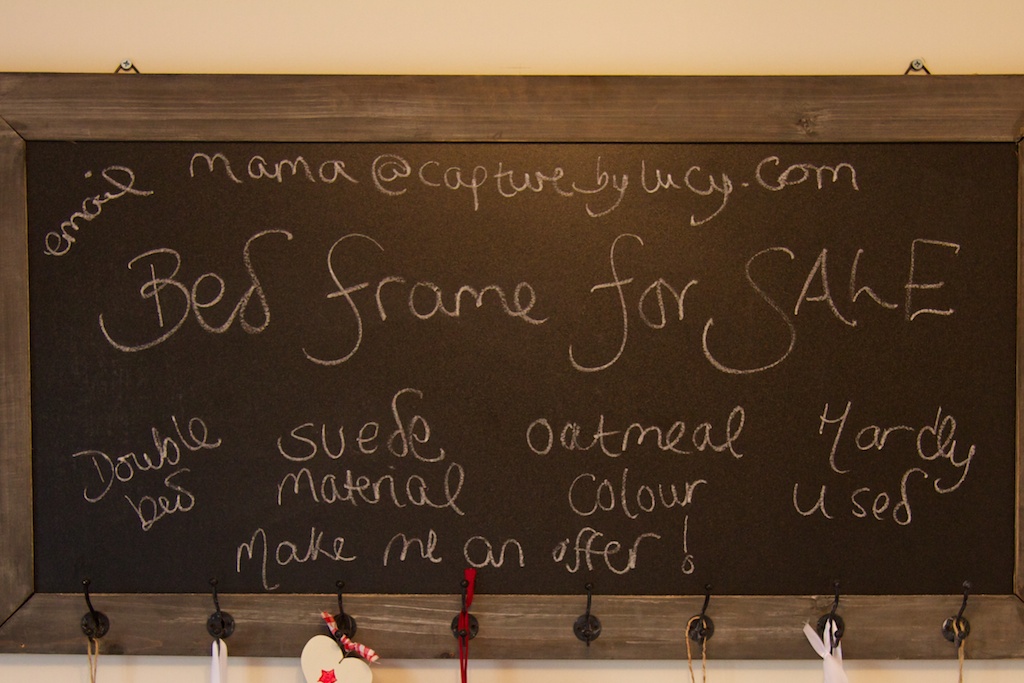 email mama@capturebylucy.com
Bed frame for SALE
Double bed
suede material
oatmeal colour
Hardly used
Make me an offer!